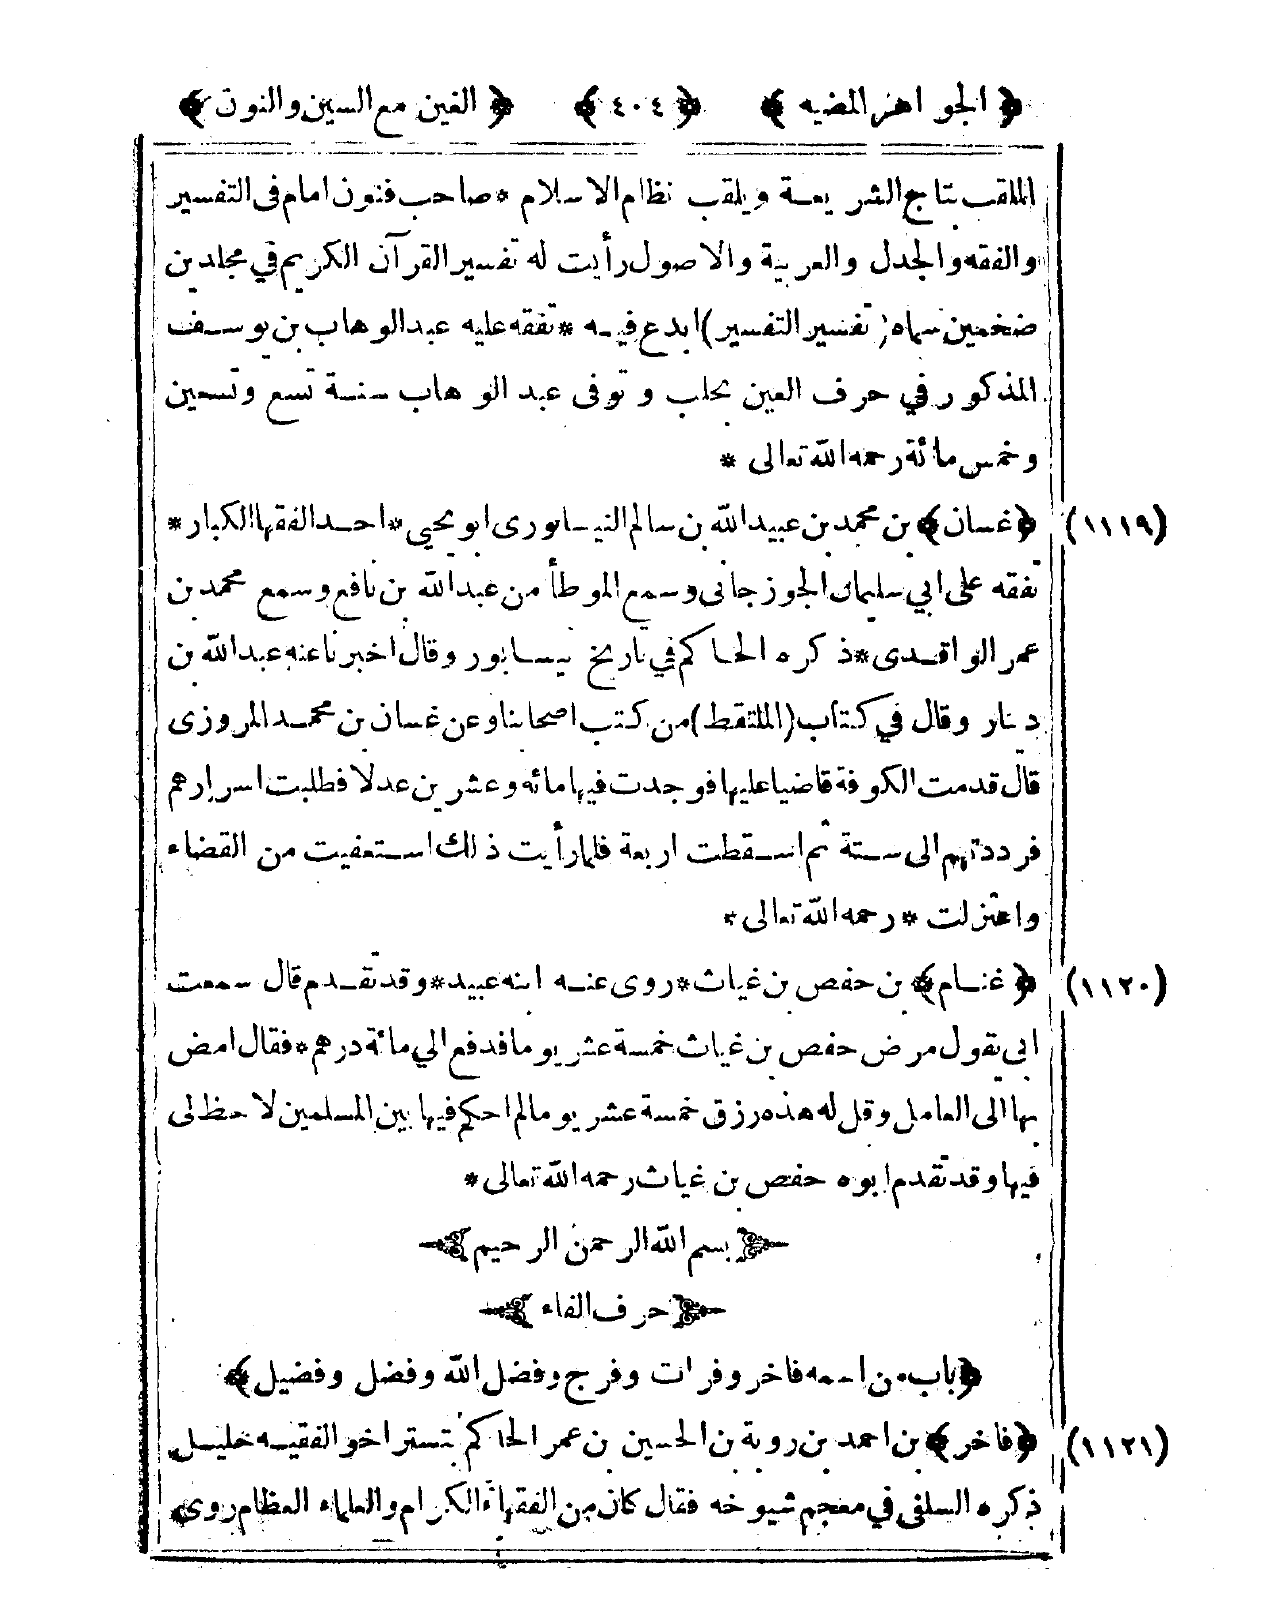 ﴿ الجواهر المضيه ﴾ ﴿ ٤٠٤ ﴾ ﴿ الغين مع السين والنون ﴾
الملقب بتاج الشريعة ويلقب نظام الاسلام * صاحب فنون امام فى التفسير
والفقه والجدل والعربية والاصول رأيت له تفسير القرآن الكريم في مجلدين
ضخمين سماه (تفسير التفسير) ابدع فيه * تفقه عليه عبدالوهاب بن يوسف
المذكور في حرف العين بحلب وتوفى عبد الوهاب سنة تسع وتسعين
وخمس مائة رحمه الله تعالى *
(١١١٩) ﴿غسان﴾ بن محمد بن عبيدالله بن سالم النيسابورى ابو يحيى * احد الفقها الكبار *
تفقه على ابي سليمان الجوزجانى وسمع الموطأ من عبدالله بن نافع وسمع محمد بن
عمر الواقدى * ذكره الحاكم في تاريخ نيسابور وقال اخبرنا عنه عبدالله بن
دينار وقال في كتاب (الملتقط) من كتب اصحابنا وعن غسان بن محمد المروزى
قال قدمت الكوفة قاضيا عليها فوجدت فيها مائه وعشرين عدلا فطلبت اسرارهم
فرددتهم الى ستة ثم اسقطت اربعة فلما رأيت ذلك استعفيت من القضاء
واعتزلت * رحمه الله تعالى *
(١١٢٠) ﴿غنام﴾ بن حفص بن غياث * روى عنه ابنه عبيد * وقد تقدم قال سمعت
ابى يقول مرض حفص بن غياث خمسة عشر يوما فدفع الي مائة درهم * فقال امض
بها الى العامل وقل له هذه رزق خمسة عشر يوما لم احكم فيها بين المسلمين لا حظ لى
فيها وقد تقدم ابوه حفص بن غياث رحمه الله تعالى *
بسم الله الرحمن الرحيم
حرف الفاء
﴿باب من اسمه فاخر وفرات وفرج وفضل الله وفضل وفضيل﴾
(١١٢١) ﴿فاخر﴾ بن احمد بن روبة بن الحسين بن عمر الحاكم بتستر اخو الفقيه خليل
ذكره السلفى في معجم شيوخه فقال كان من الفقهاء الكرام والعلماء العظام روى